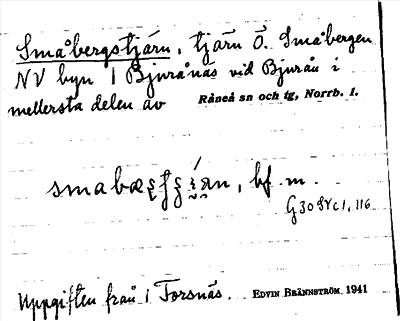 Småbergstjärn, tjärn Ö. Småbergen
NV byn 1 Bjurånäs vid Bjurån i
mellersta delen av Råneå sn och tg, Norrb. l.
bf. m.
G 30
Uppgiften från 1 Forsnäs. EDVIN BRÄNNSTRÖM 1941